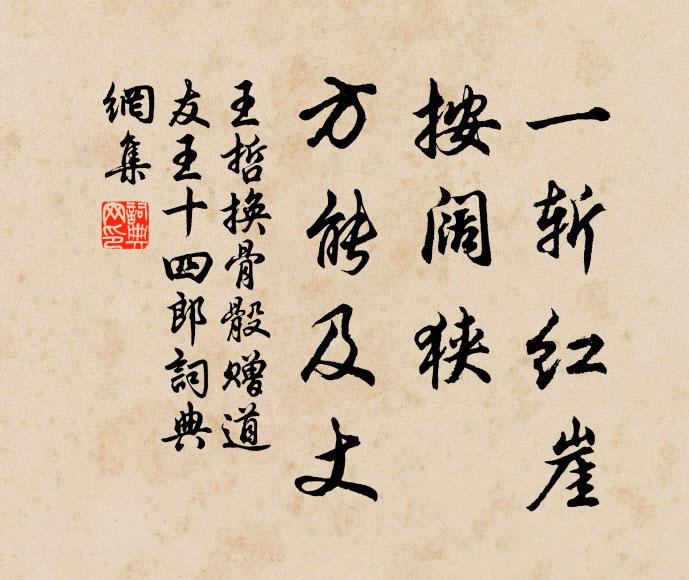 一斩红崖
按阔狭
方能及丈
王哲换骨骰赠道
友王十四郎詞典
網集
詞典
网印